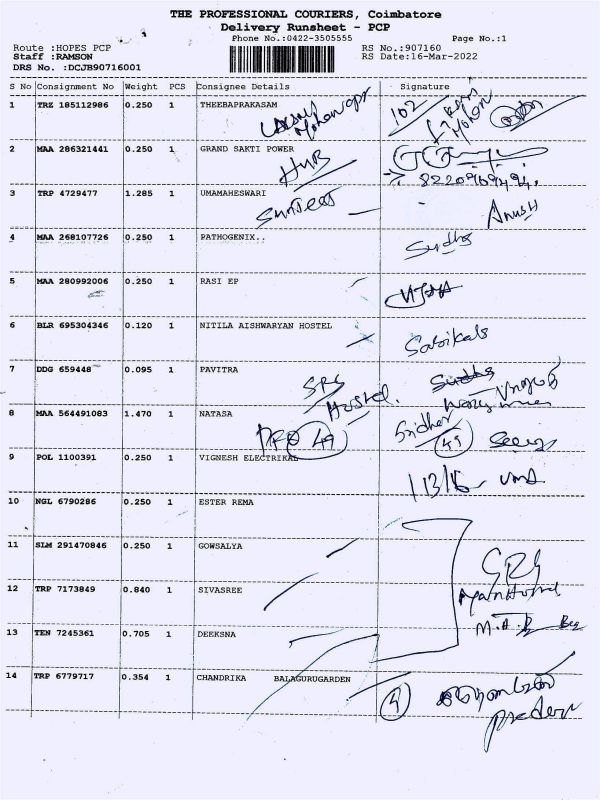 THE PROFESSIONAL COURIERS, Coimbatore
Delivery Runsheet - PCP
Phone No.:0422-3505555
Page No.:1
Route :HOPES PCP
RS No.:907160
Staff :RAMSON
RS Date:16-Mar-2022
DRS No. :DCJB90716001
S No Consignment No Weight PCS Consignee Details Signature
1 TRZ 185112986 0.250 1 THEEBAPRAKASAM
102
Mohan
2 MAA 286321441 0.250 1 GRAND SAKTI POWER
HUB
3 TRP 4729477 1.285 1 UMAMAHESWARI
Anush
4 MAA 268107726 0.250 1 PATHOGENIX..
Sudha
5 MAA 280992006 0.250 1 RASI EP
6 BLR 695304346 0.120 1 NITILA AISHWARYAN HOSTEL
7 DDG 659448 0.095 1 PAVITRA
SRG Hostel.
8 MAA 564491083 1.470 1 NATASA
49
Sridher
49
9 POL 1100391 0.250 1 VIGNESH ELECTRIKAL
10 NGL 6790286 0.250 1 ESTER REMA
11 SLM 291470846 0.250 1 GOWSALYA
12 TRP 7173849 0.840 1 SIVASREE
13 TEN 7245361 0.705 1 DEEKSNA
14 TRP 6779717 0.354 1 CHANDRIKA BALAGURUGARDEN
4